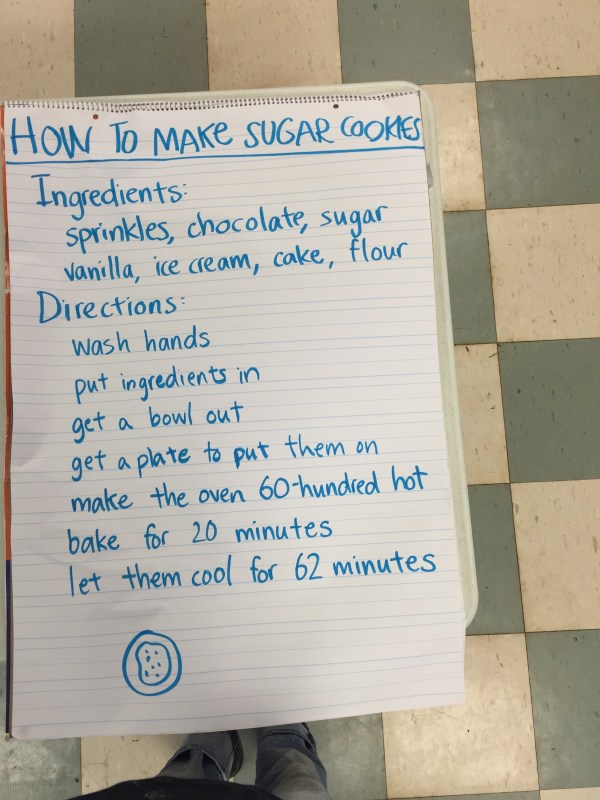 HOW TO MAKE SUGAR COOKIES
Ingredients:
sprinkles, chocolate, sugar
vanilla, ice cream, cake, flour
Directions:
wash hands
put ingredients in
get a bowl out
get a plate to put them on
make the oven 60-hundred hot
bake for 20 minutes
let them cool for 62 minutes